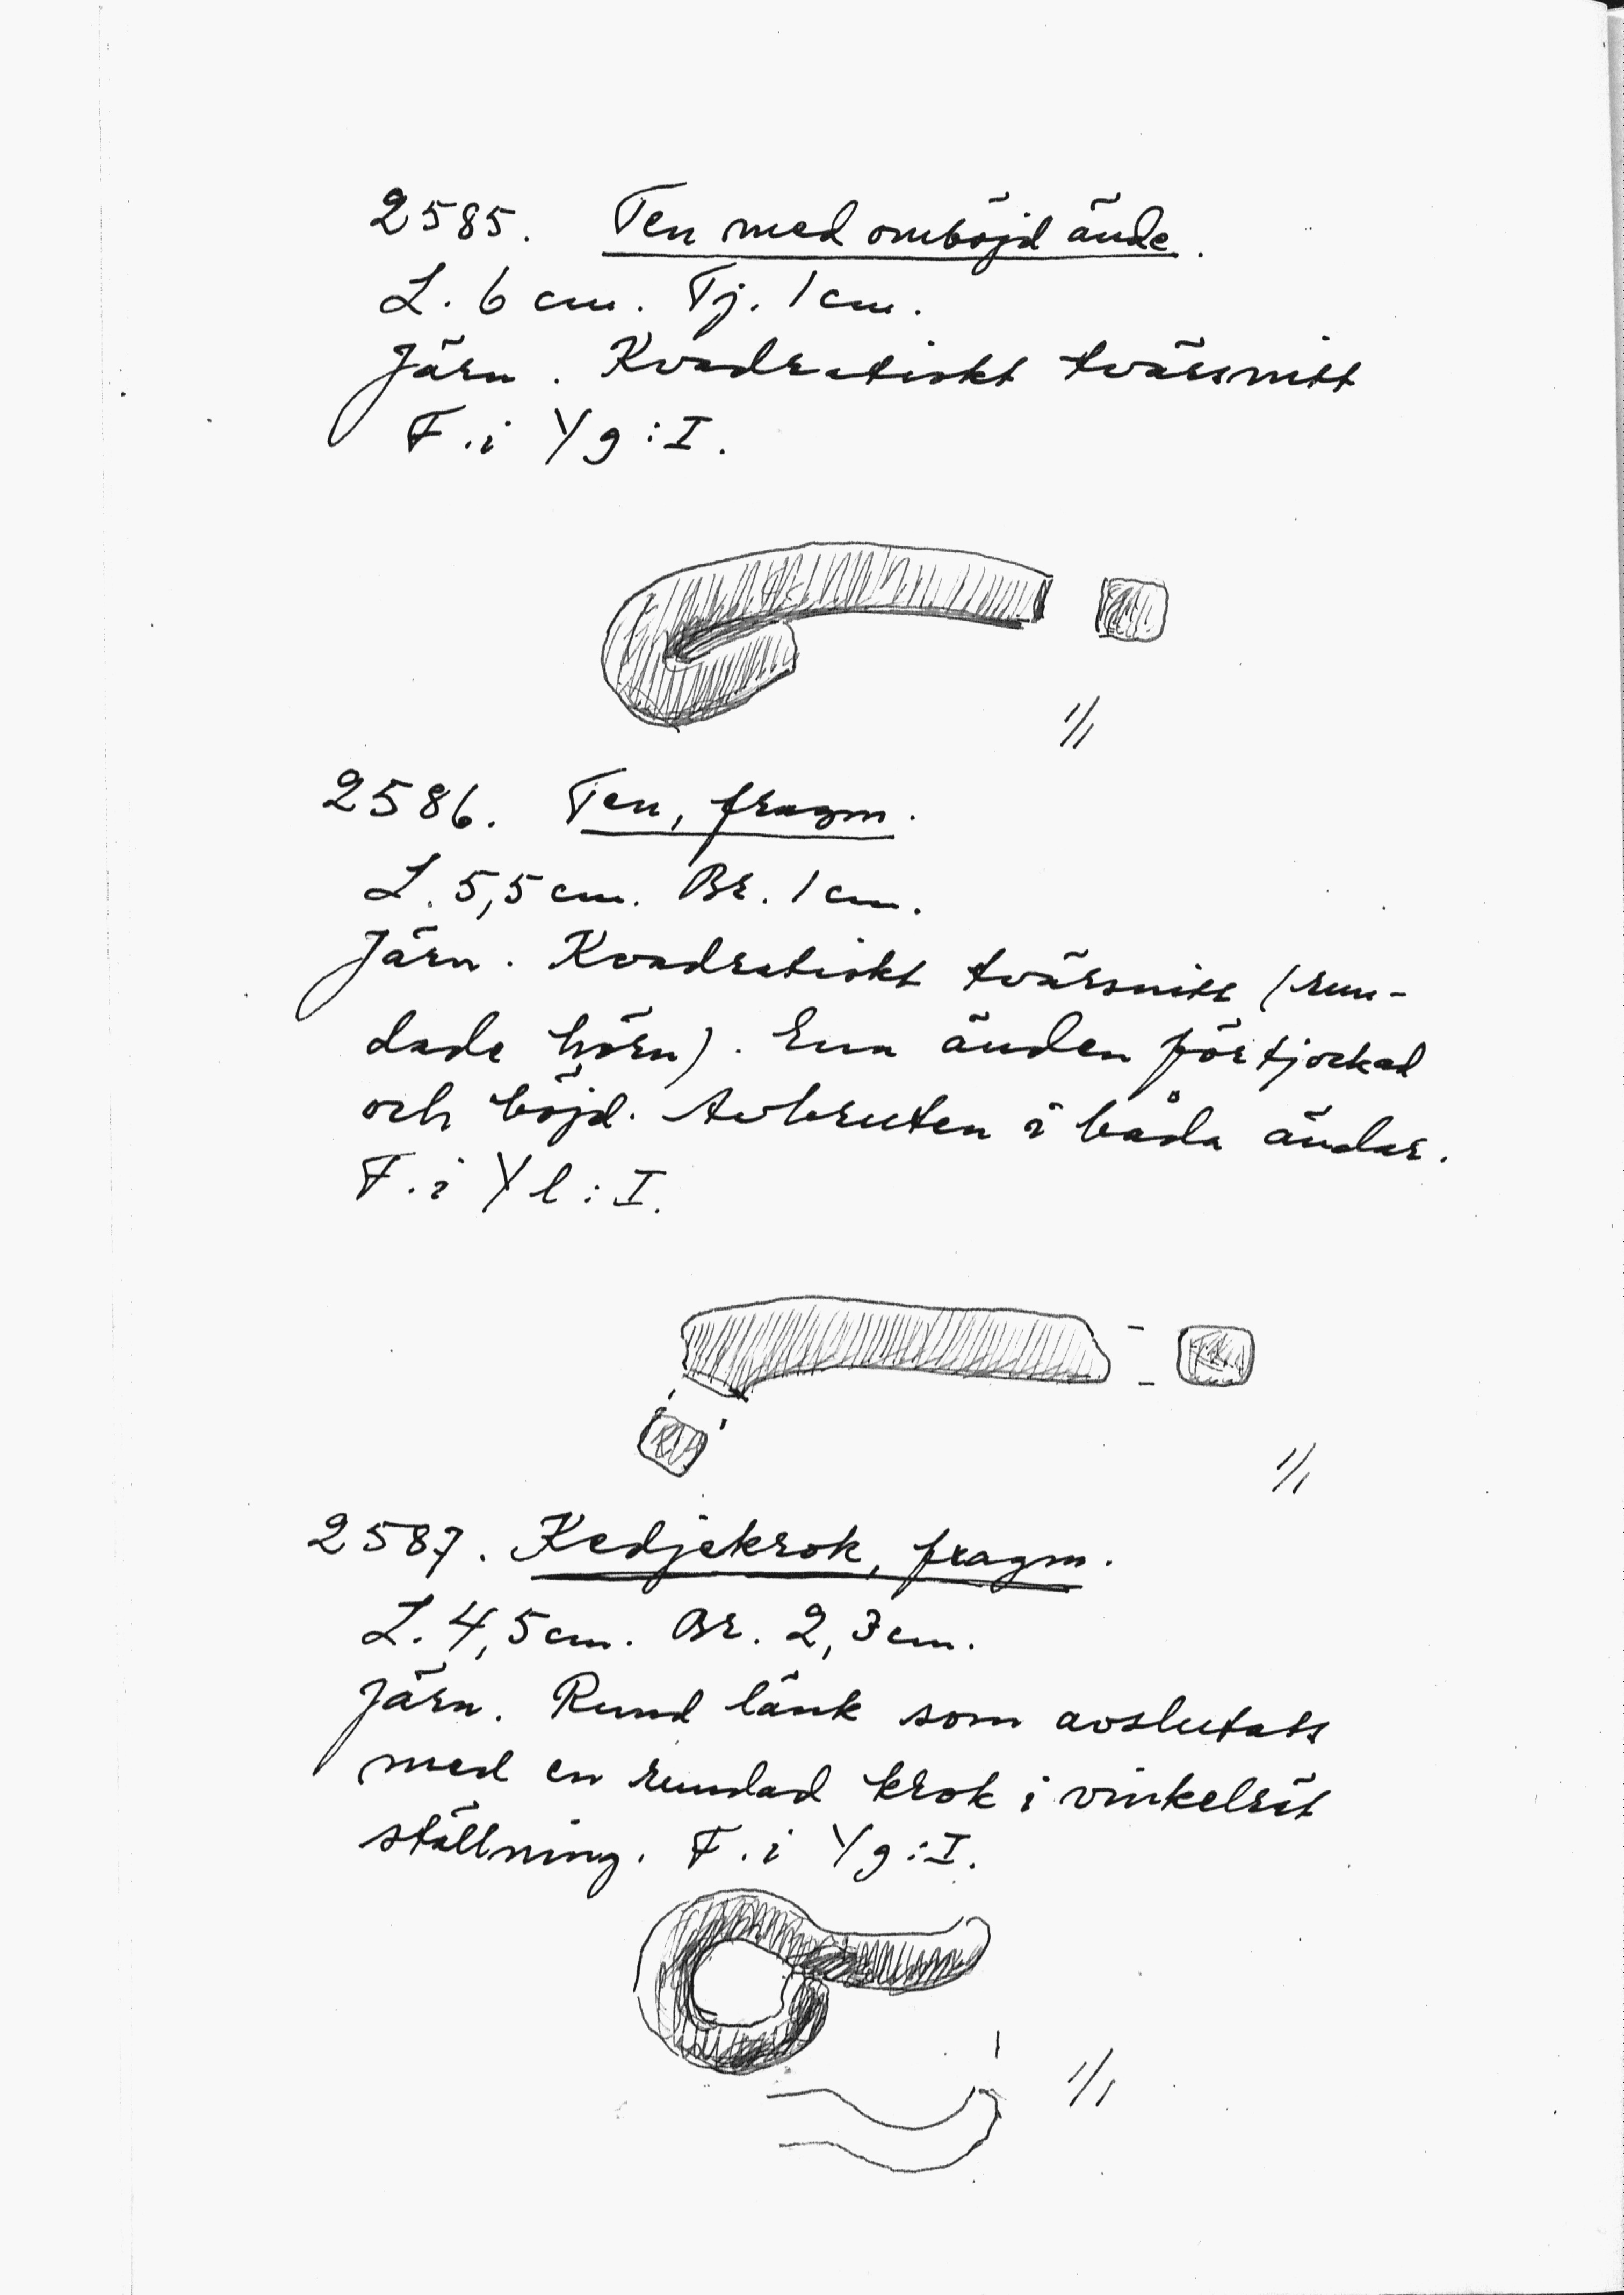 2585. Ten med omböjd ände.
L. 6 cm. Tj. 1 cm.
Järn. Kvadratiskt tvärsnitt
F. i Yg:I.
1/1
2586. Ten, fragm.
L. 5,5 cm. Br. 1 cm.
Järn. Kvadratiskt tvärsnitt (run-
dade hörn). Ena änden förtjockad
och böjd. Avbruten i båda ändar.
F. i Yl:I.
1/1
2587. Kedjekrok, fragm.
L. 4,5 cm. Br. 2,3 cm.
Järn. Rund länk som avslutats
med en rundad krok i vinkelrät
ställning. F. i Yg:I.
1/1